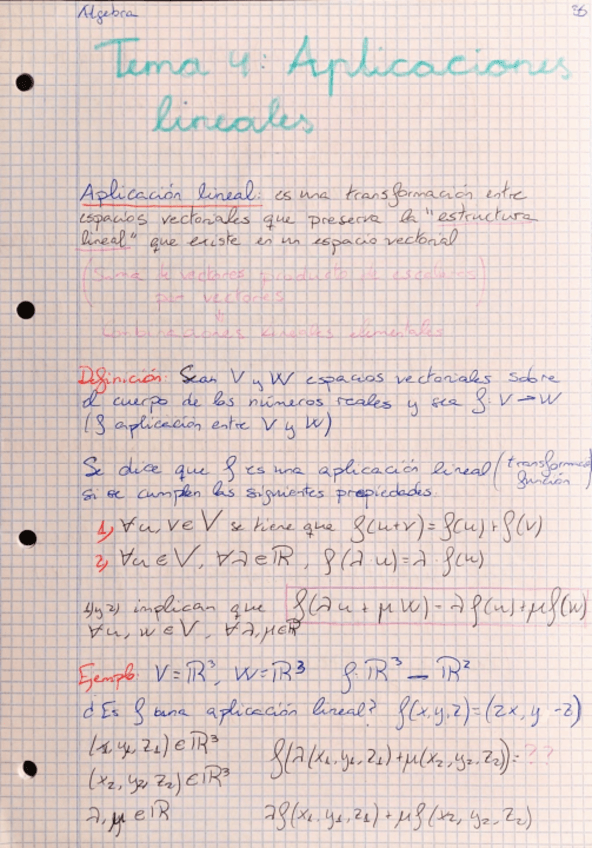 Algebra 36
Tema 4: Aplicaciones
lineales
Aplicación lineal: es una transformación entre
espacios vectoriales que preserva la "estructura
lineal" que existe en un espacio vectorial
(Suma de vectores producto de escalares)
por vectores
↓
Combinaciones lineales elementales
Definición: Sean V y W espacios vectoriales sobre
el cuerpo de los números reales y sea f: V → W
(f aplicación entre V y W)
Se dice que f es una aplicación lineal (
función)
si se cumplen las siguientes propiedades
1) ∀u, v ∈ V se tiene que f(u+v) = f(u) + f(v)
2) ∀u ∈ V, ∀λ ∈ ℝ, f(λ u) = λ · f(u)
1) y 2) implican que f(λu + μw) = λf(u) + μf(w)
∀u, w ∈ V, ∀λ, μ ∈ ℝ
Ejemplo: V = ℝ³, W = ℝ³ f: ℝ³ — ℝ²
¿Es f una aplicación lineal? f(x, y, z) = (2x, y - z)
(x₁, y₁, z₁) ∈ ℝ³ f(λ(x₁, y₁, z₁) + μ(x₂, y₂, z₂)) = ??
(x₂, y₂, z₂) ∈ ℝ³
λ, μ ∈ ℝ λf(x₁, y₁, z₁) + μf(x₂, y₂, z₂)